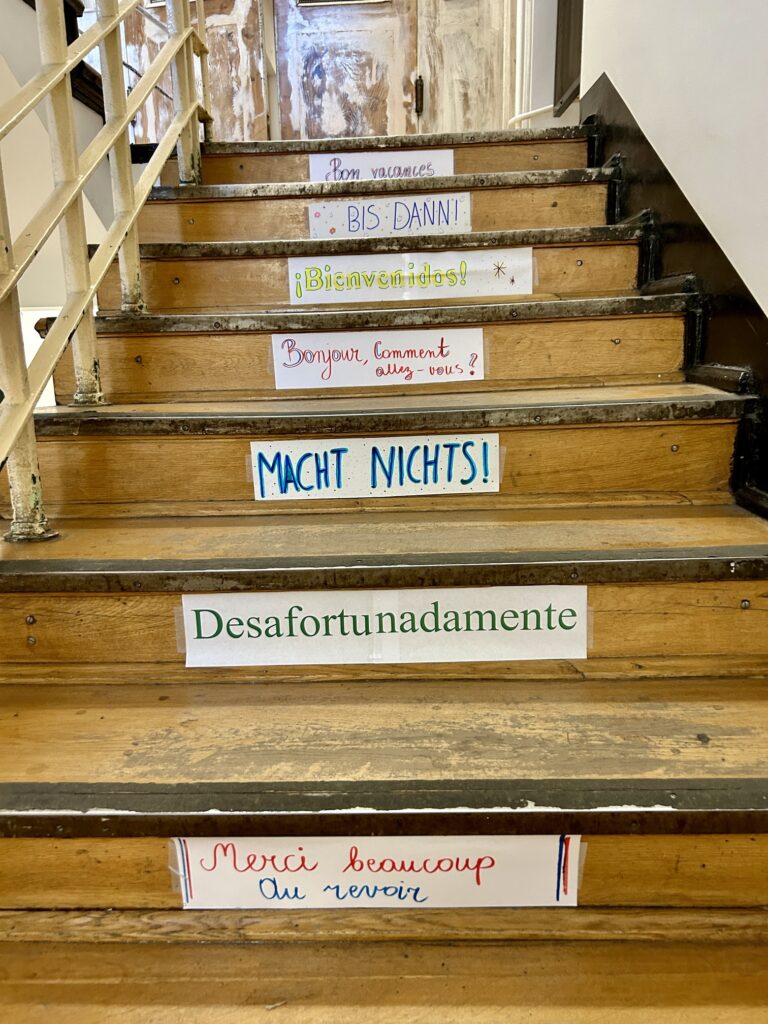 Bon vacances
BIS DANN!
¡Bienvenidos!
Bonjour, Comment
allez-vous?
MACHT NICHTS!
Desafortunadamente
Merci beaucoup
Au revoir